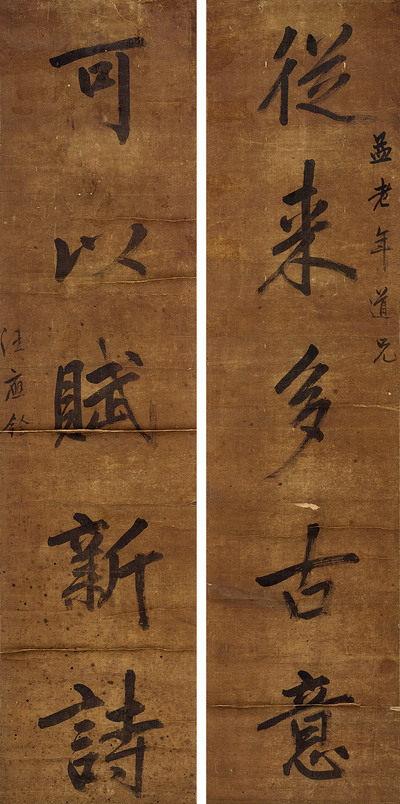 從来多古意
老年道兄
可以賦新詩
汪應銓